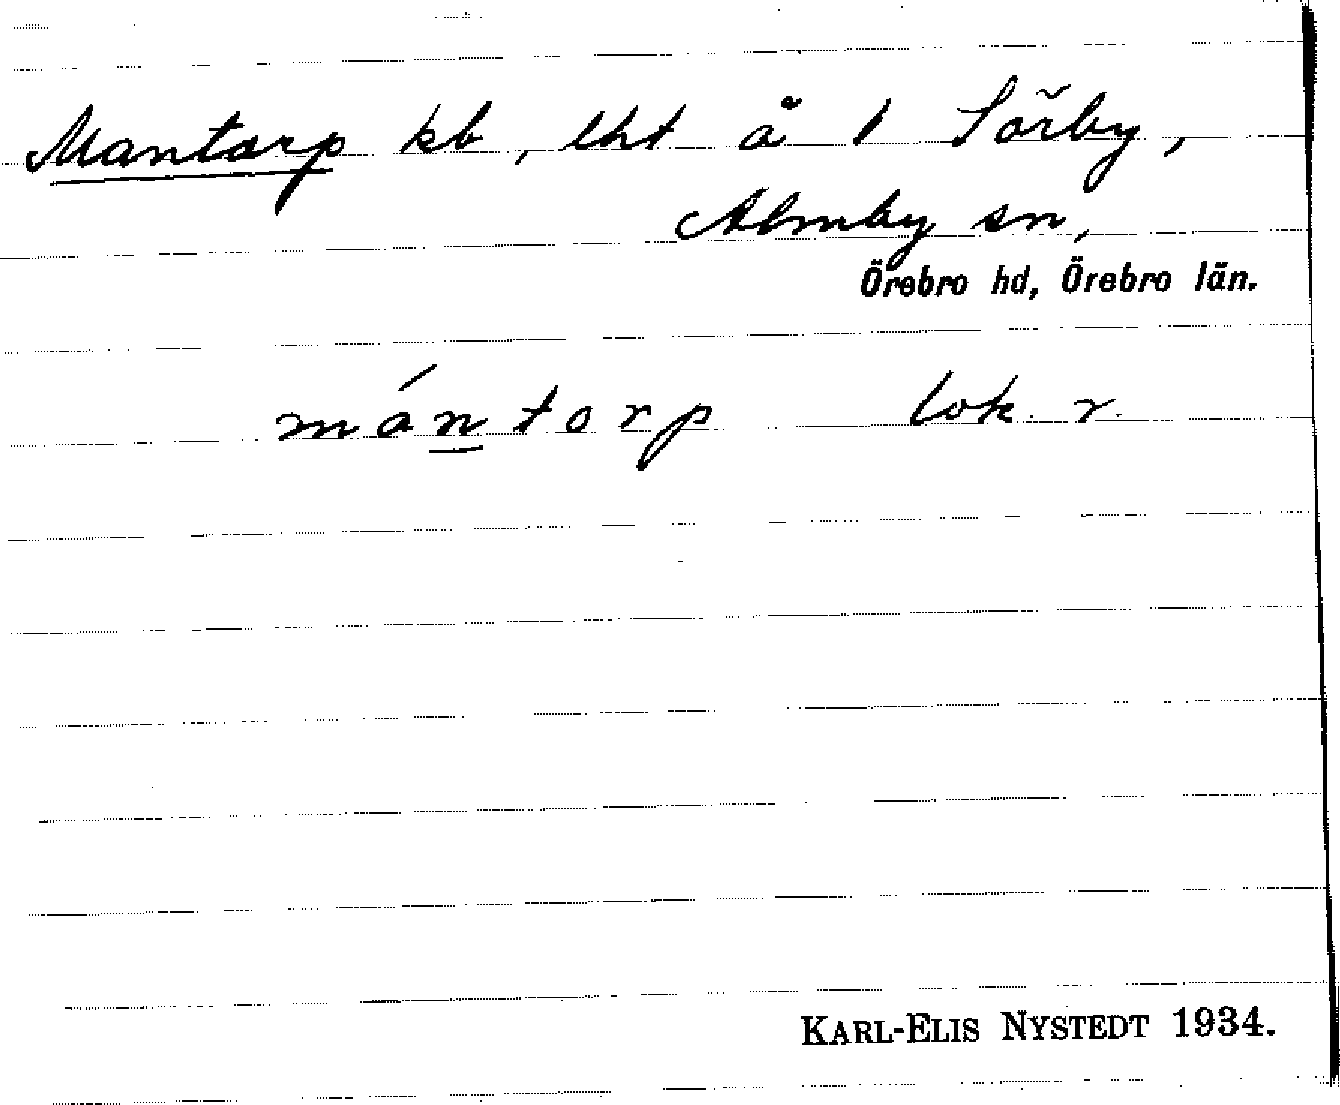 Mantorp kb, lht å 1 Sörby,
Almby sn,
Örebro hd, Örebro län.
mántorp lok. r.
KARL-ELIS NYSTEDT 1934.